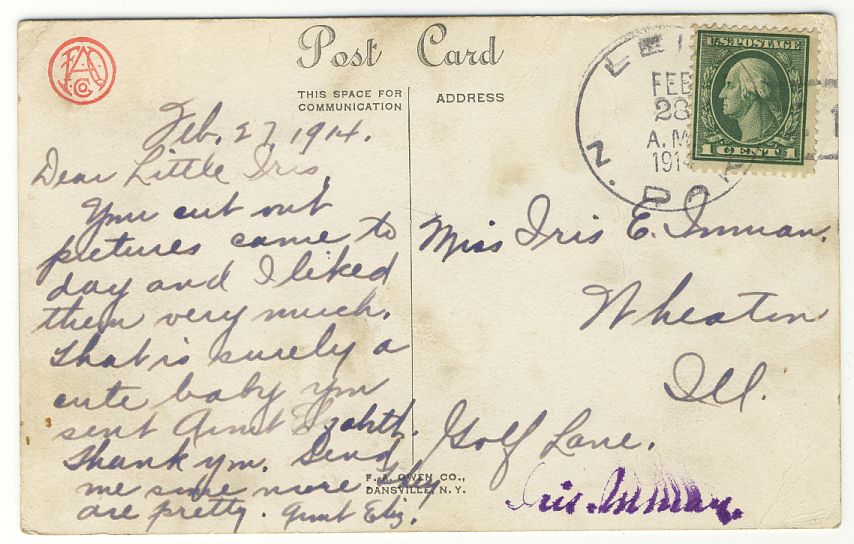 Post Card
THIS SPACE FOR
COMMUNICATION
ADDRESS
U.S. POSTAGE
1 CENT 1
FEB
28
A.M
1914
Feb. 27, 1914.
Dear Little Iris,
Your cut out
pictures came to
day and I liked
them very much.
That is surely a
cute baby you
sent Aunt Lizabth.
Thank you. Send
me some more they
are pretty. Aunt Eliz.
Miss Iris E. Inman.
Wheaton
Ill.
Golf Lane.
Iris Inman.
F. A. OWEN CO.,
DANSVILLE, N.Y.